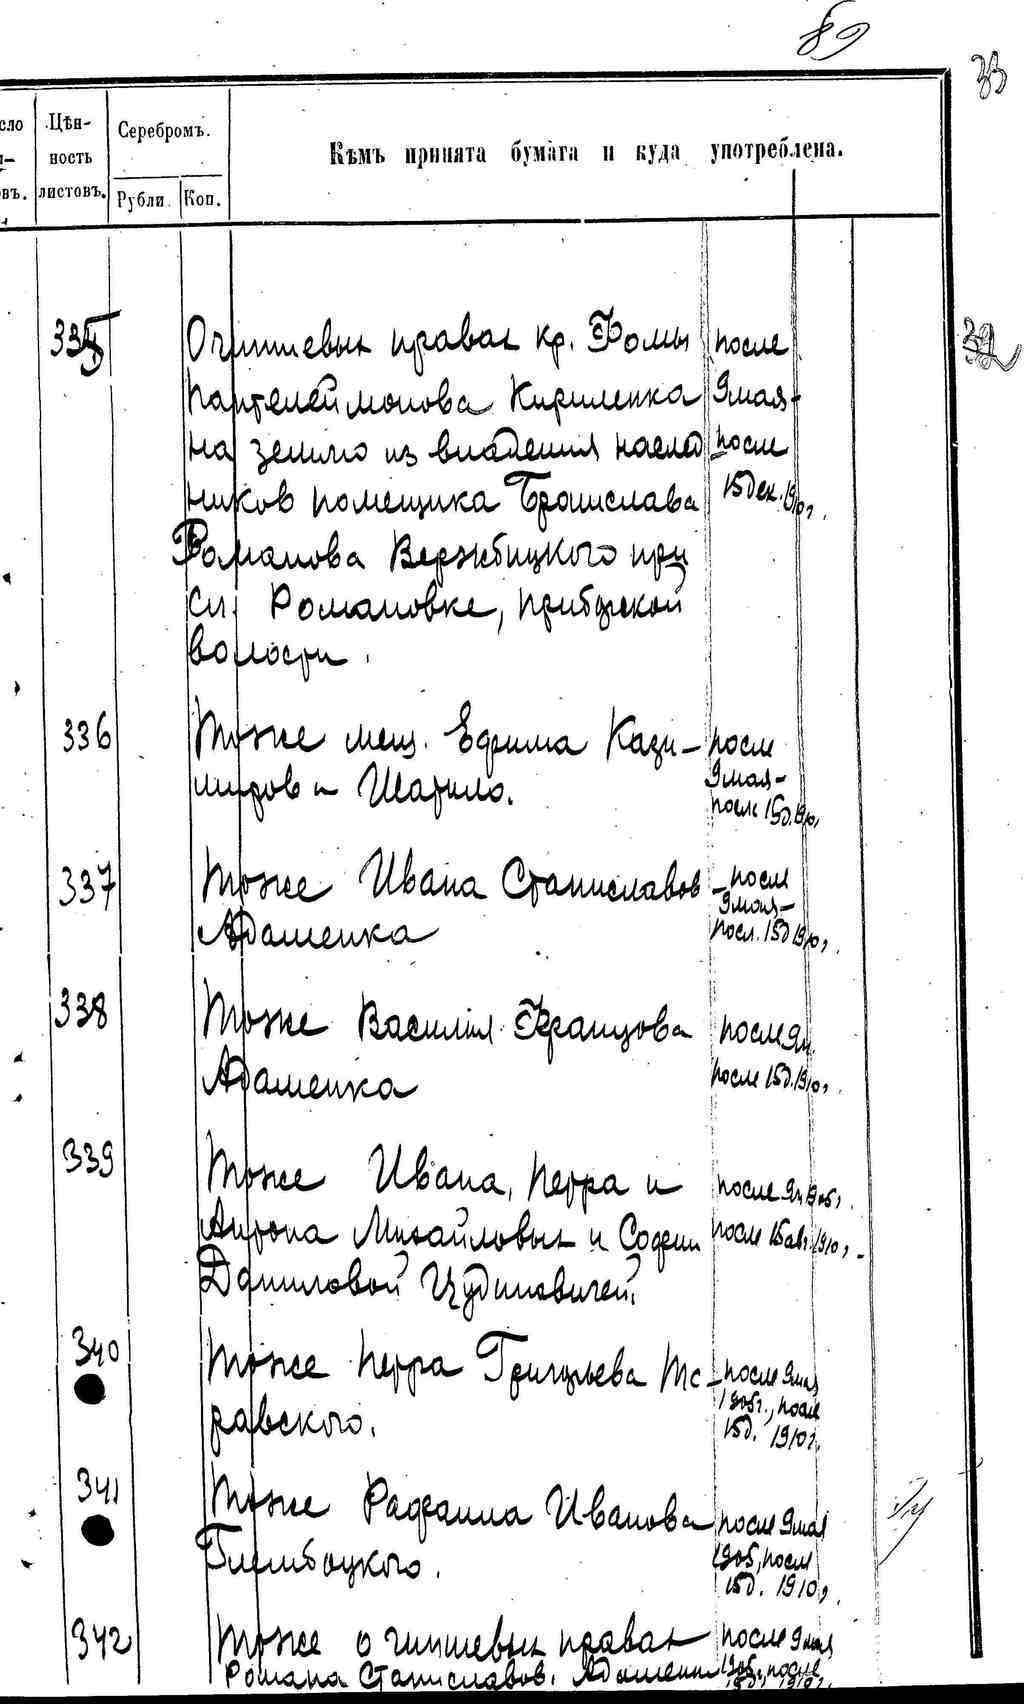 89
33
сло
Цѣн-
ность
листовъ.
Серебромъ.
Рубли
Коп.
Кѣмъ принята бумага и куда употреблена.
32
335 О чиншевых правах кр. Фомы после
Пантелеймонова Кириленка 9 мая -
на землю из владения наслед после
ников помещика Бронислава 15 дек. 1910 г.
Романова Вержбицкого при
сл. Романовке, Прибужской
волости.
336 Тоже мещ. Ефима Кази- после
мирова Шатило. 9 мая -
после 15 д. 1910,
337 Тоже Ивана Станиславов - после
Адаменка 9 мая -
посл. 15 д 1910 г.
338 Тоже Василия Францова после 9 м.
Адаменка после 15 д. 1910 г.
339 Тоже Ивана, Петра и после 9 м 1905 г.
Антона Михайловых и Софии после 15 авг. 1910 г.
Даниловой Цудиновичей.
340 Тоже Петра Григорьева Та- после 9 мая
равского. 1905 г., после
15 д. 1910 г.
341 Тоже Рафаила Иванова после 9 мая
Глембоцкого. 1905, после
15 д. 1910 г.
342 Тоже о чиншевых правах после 9 мая
Романа Станиславов. 1905, после